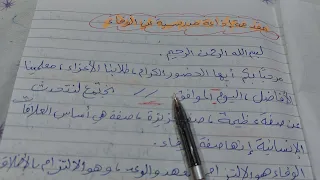 مقدمة إذاعة مدرسية عن الوفاء
بسم الله الرحمن الرحيم.
مرحبًا بكم أيها الحضور الكرام، طلابنا الأعزاء، معلمينا
الأفاضل، اليوم الموافق // اجتمع لنتحدث
عن صفة عظيمة، صفة هي أساس العلاقات
الإنسانية إنها صفة
الوفاء هو الالتزام بالعهد والوعد، وهو الالتزام بالأخلاق